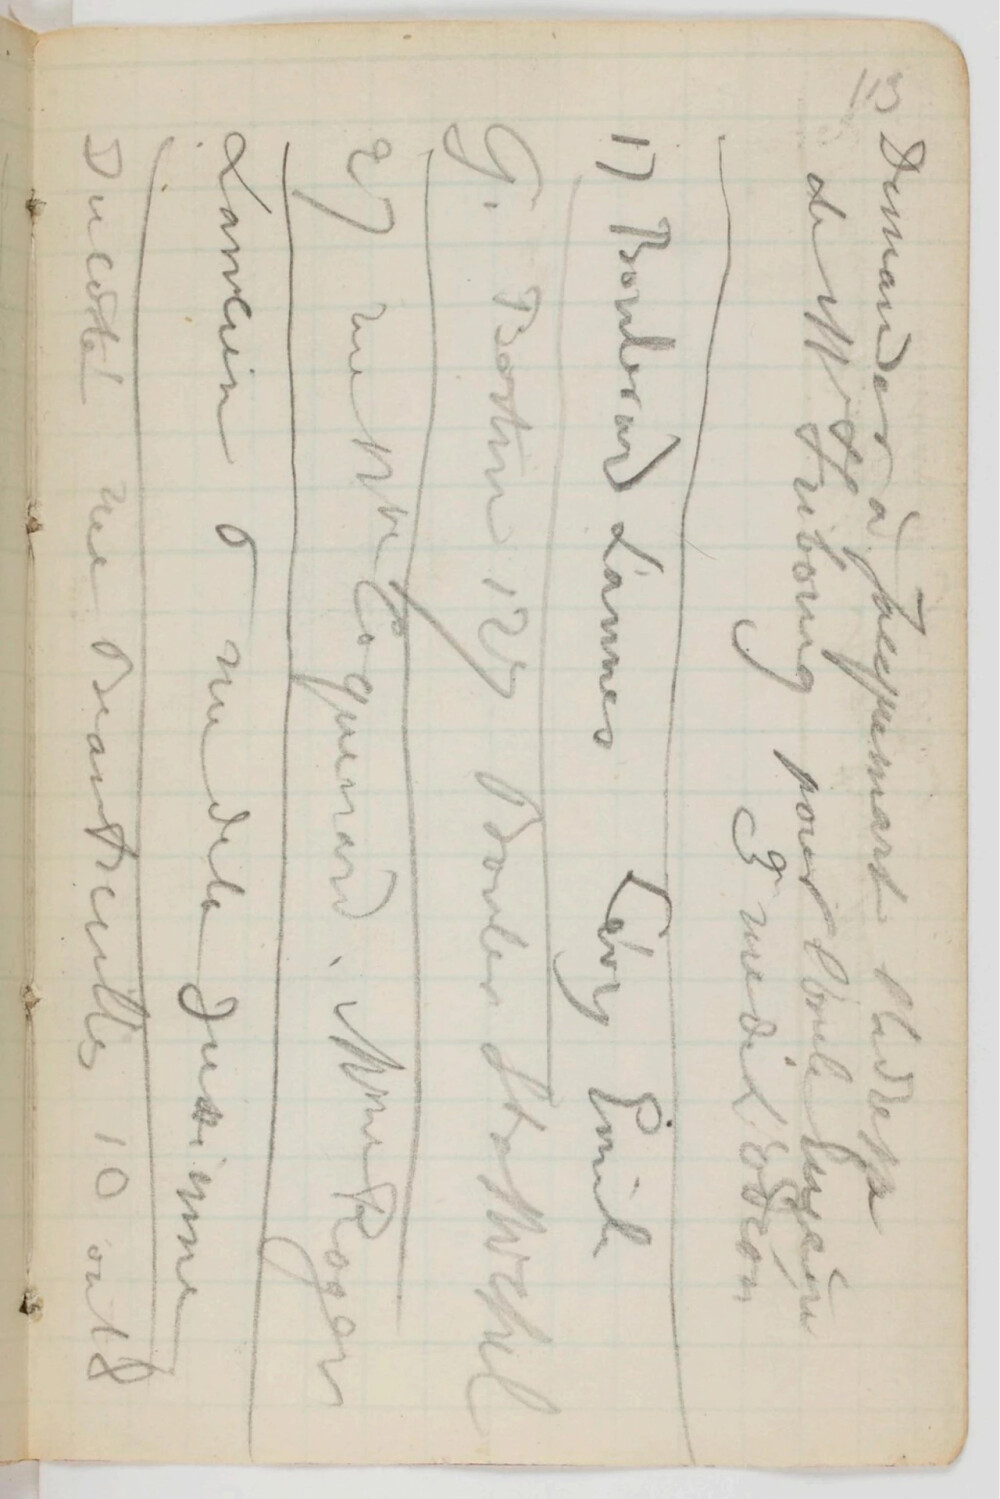 Demander à Jacquemart l'adresse
de Mr Fribourg pour l'école Lucien
3 rue de l'Odéon
17 Boulevard Lannes Lévy Emile
G. Bortin 127 Boulev St Michel
27 rue Nve Coquenard. Mme Roger
Lanvein 5 rue de la Jussienne
Ducoté rue Beautreillis 10 ou 18